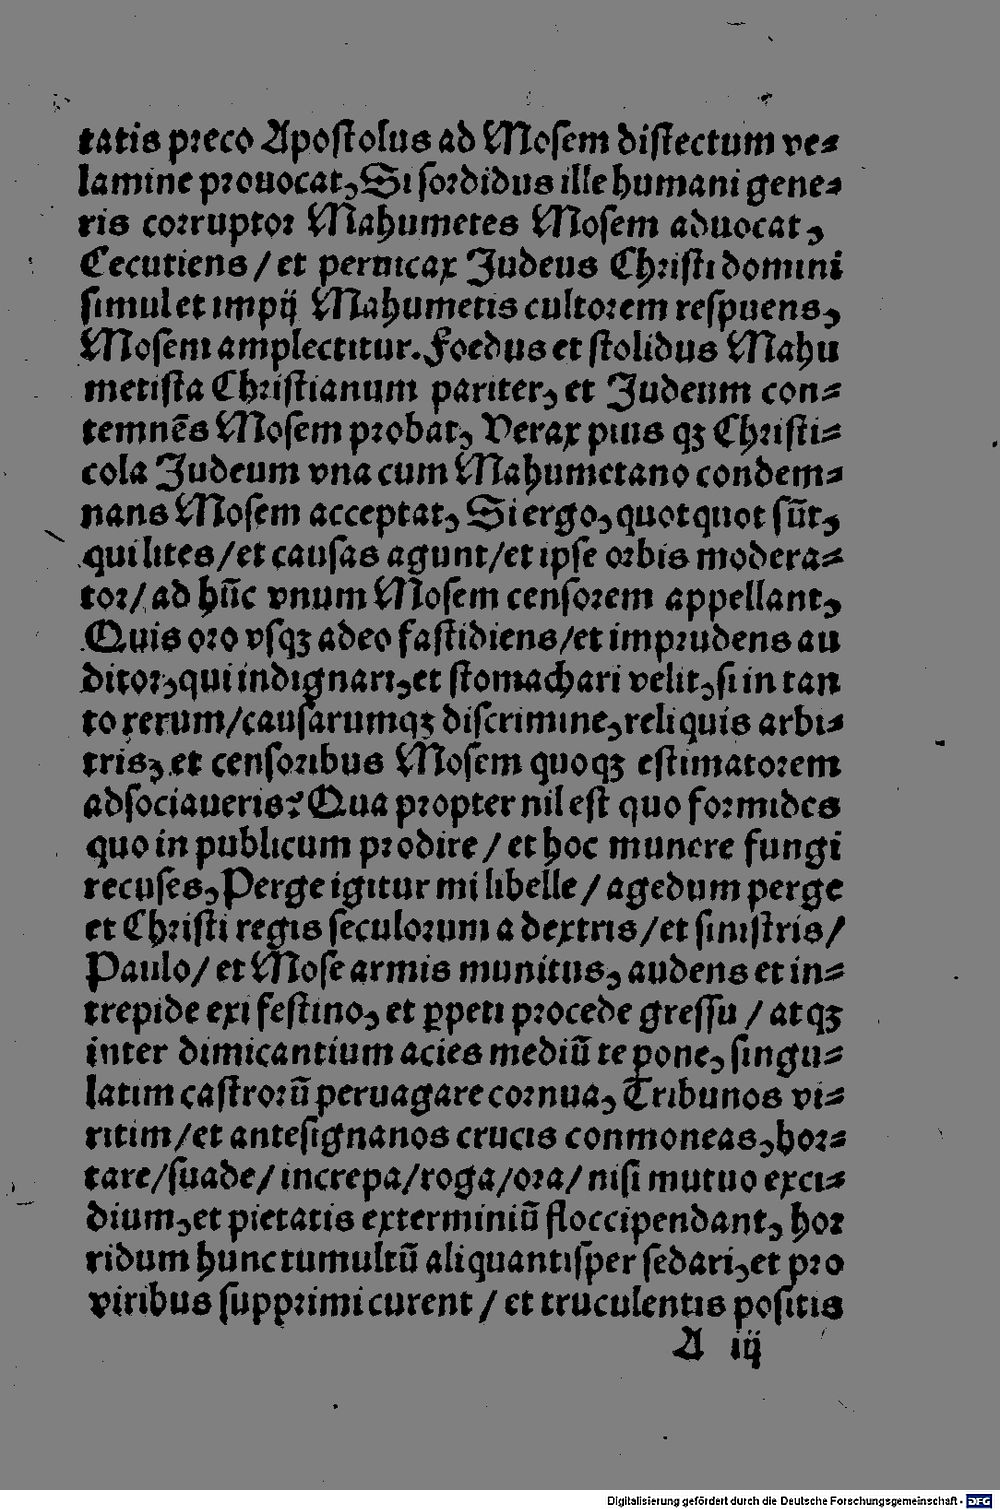 tatis preco Apostolus ad Mosem dissectum ve⸗
lamine prouocat, Si sordidus ille humani gene⸗
ris corruptor Mahumetes Mosem aduocat,
Cecutiens / et pernicax Judeus Christi domini
simul et impij Mahumetis cultorem respuens,
Mosem amplectitur. Foedus et stolidus Mahu
metista Christianum pariter, et Judeum con⸗
temnēs Mosem probat, Verax pius qꝫ Christi⸗
cola Judeum vna cum Mahumetano condem⸗
nans Mosem acceptat, Si ergo, quotquot sūt,
qui lites / et causas agunt / et ipse orbis modera⸗
tor / ad hūc vnum Mosem censorem appellant,
Quis oro vsqꝫ adeo fastidiens / et imprudens au
ditor, qui indignari, et stomachari velit, si in tan
to rerum / causarumqꝫ discrimine, reliquis arbi⸗
tris, et censoribus Mosem quoqꝫ estimatorem
adsociaueris? Qua propter nil est quo formides
quo in publicum prodire / et hoc munere fungi
recuses, Perge igitur mi libelle / agedum perge
et Christi regis seculorum a dextris / et sinistris /
Paulo / et Mose armis munitus, audens et in⸗
trepide exi festino, et ꝑpeti procede gressu / atqꝫ
inter dimicantium acies mediū te pone, singu⸗
latim castrorū peruagare cornua, Tribunos vi⸗
ritim / et antesignanos crucis conmoneas, hor⸗
tare / suade / increpa / roga / ora / nisi mutuo exci⸗
dium, et pietatis exterminiū floccipendant, hor
ridum hunc tumultū aliquantisper sedari, et pro
viribus supprimi curent / et truculentis positis
A iij
Digitalisierung gefördert durch die Deutsche Forschungsgemeinschaft - DFG